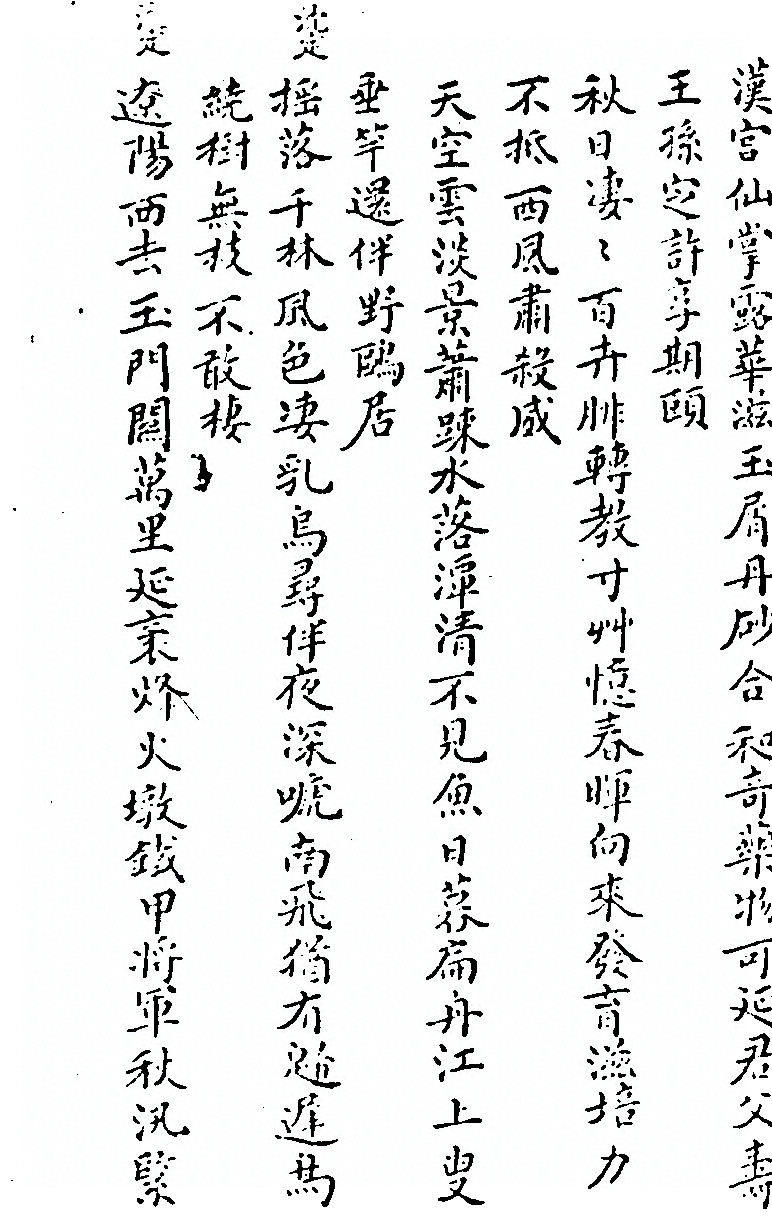 漢宮仙掌露華滋玉屑丹砂合和奇藥物可延君父壽
王孫定許享期頤
秋日凄〻百卉腓轉教寸艸憶春暉向來發育滋培力
不抵西風肅殺威
天空雲淡景蕭踈水落潭清不見魚日暮扁舟江上叟
垂竿還伴野鷗居
摇落千林風色凄乳烏尋伴夜深嗁南飛猶有
遲
繞樹無枝不敢棲
遼陽西去玉門關萬里延袤烽火墩鐵甲將軍秋汛緊